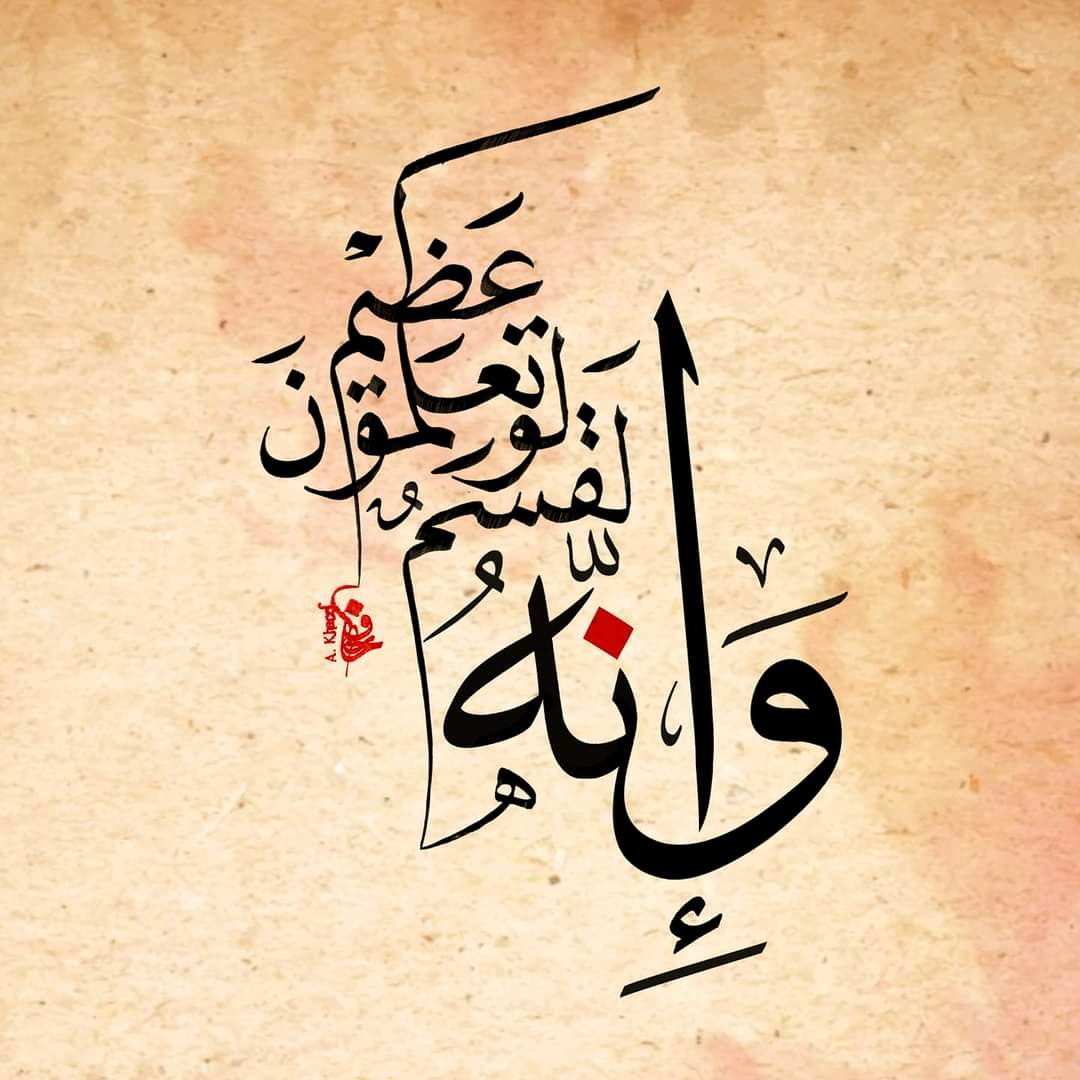 وَإِنَّهُ
لَقَسَمٌ
لَوْ تَعْلَمُونَ
عَظِيمٌ
A. Khaef